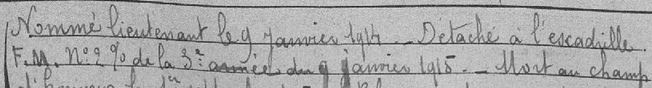 Nommé lieutenant le 9 Janvier 1914 _ Détaché à l'escadrille
F.M. N° 2 % de la 3e armée du 9 janvier 1915 _ Mort au champ